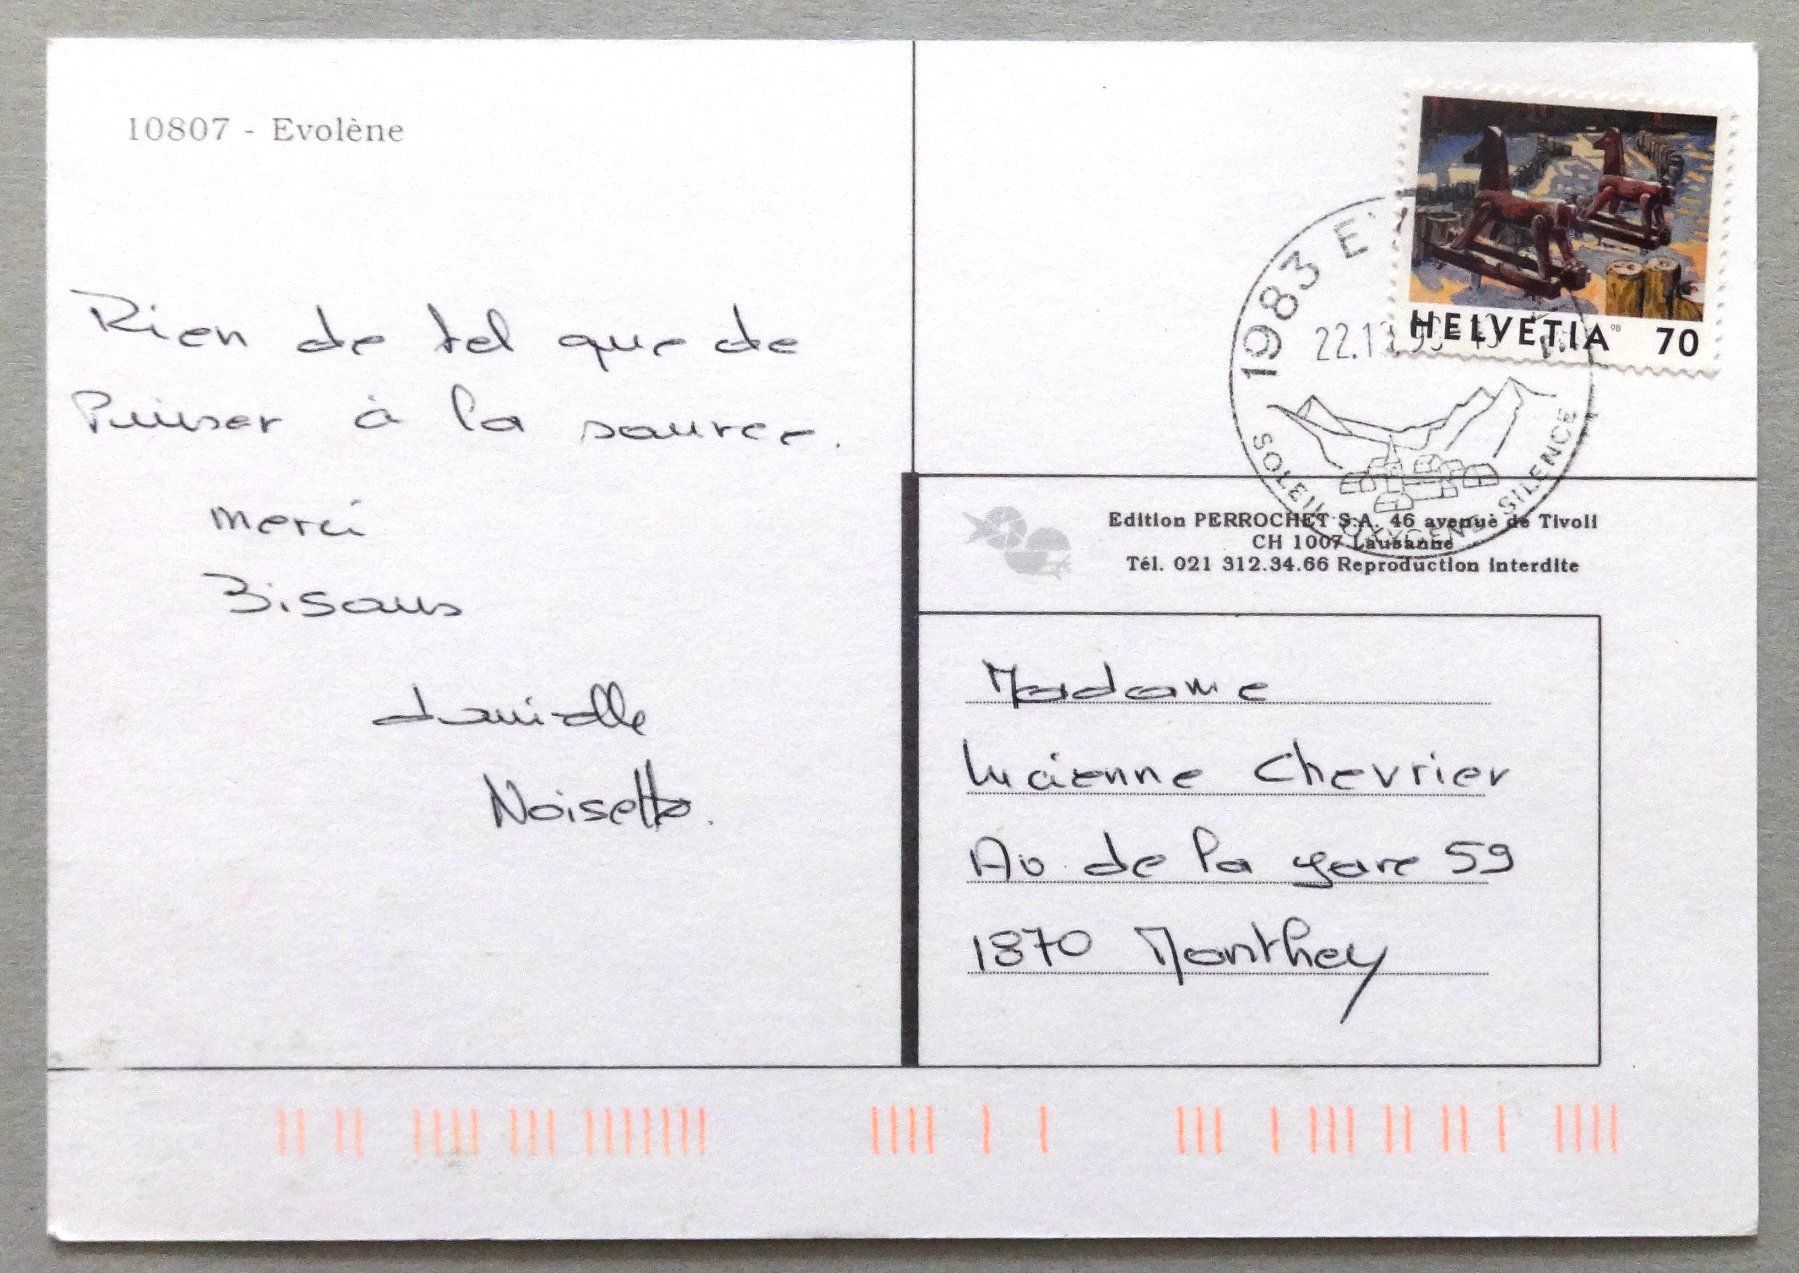 10807 - Evolène
Rien de tel que de
Puiser à la source.
merci
Bisous
danielle
Noisette.
HELVETIA 98 70
1983 EV
22.12.98-
SOLEIL OXYGENE SILENCE
Edition PERROCHET S.A. 46 avenue de Tivoli
CH 1007 Lausanne
Tél. 021 312.34.66 Reproduction interdite
Madame
Lucienne Chevrier
Av. de la gare 59
1870 Monthey